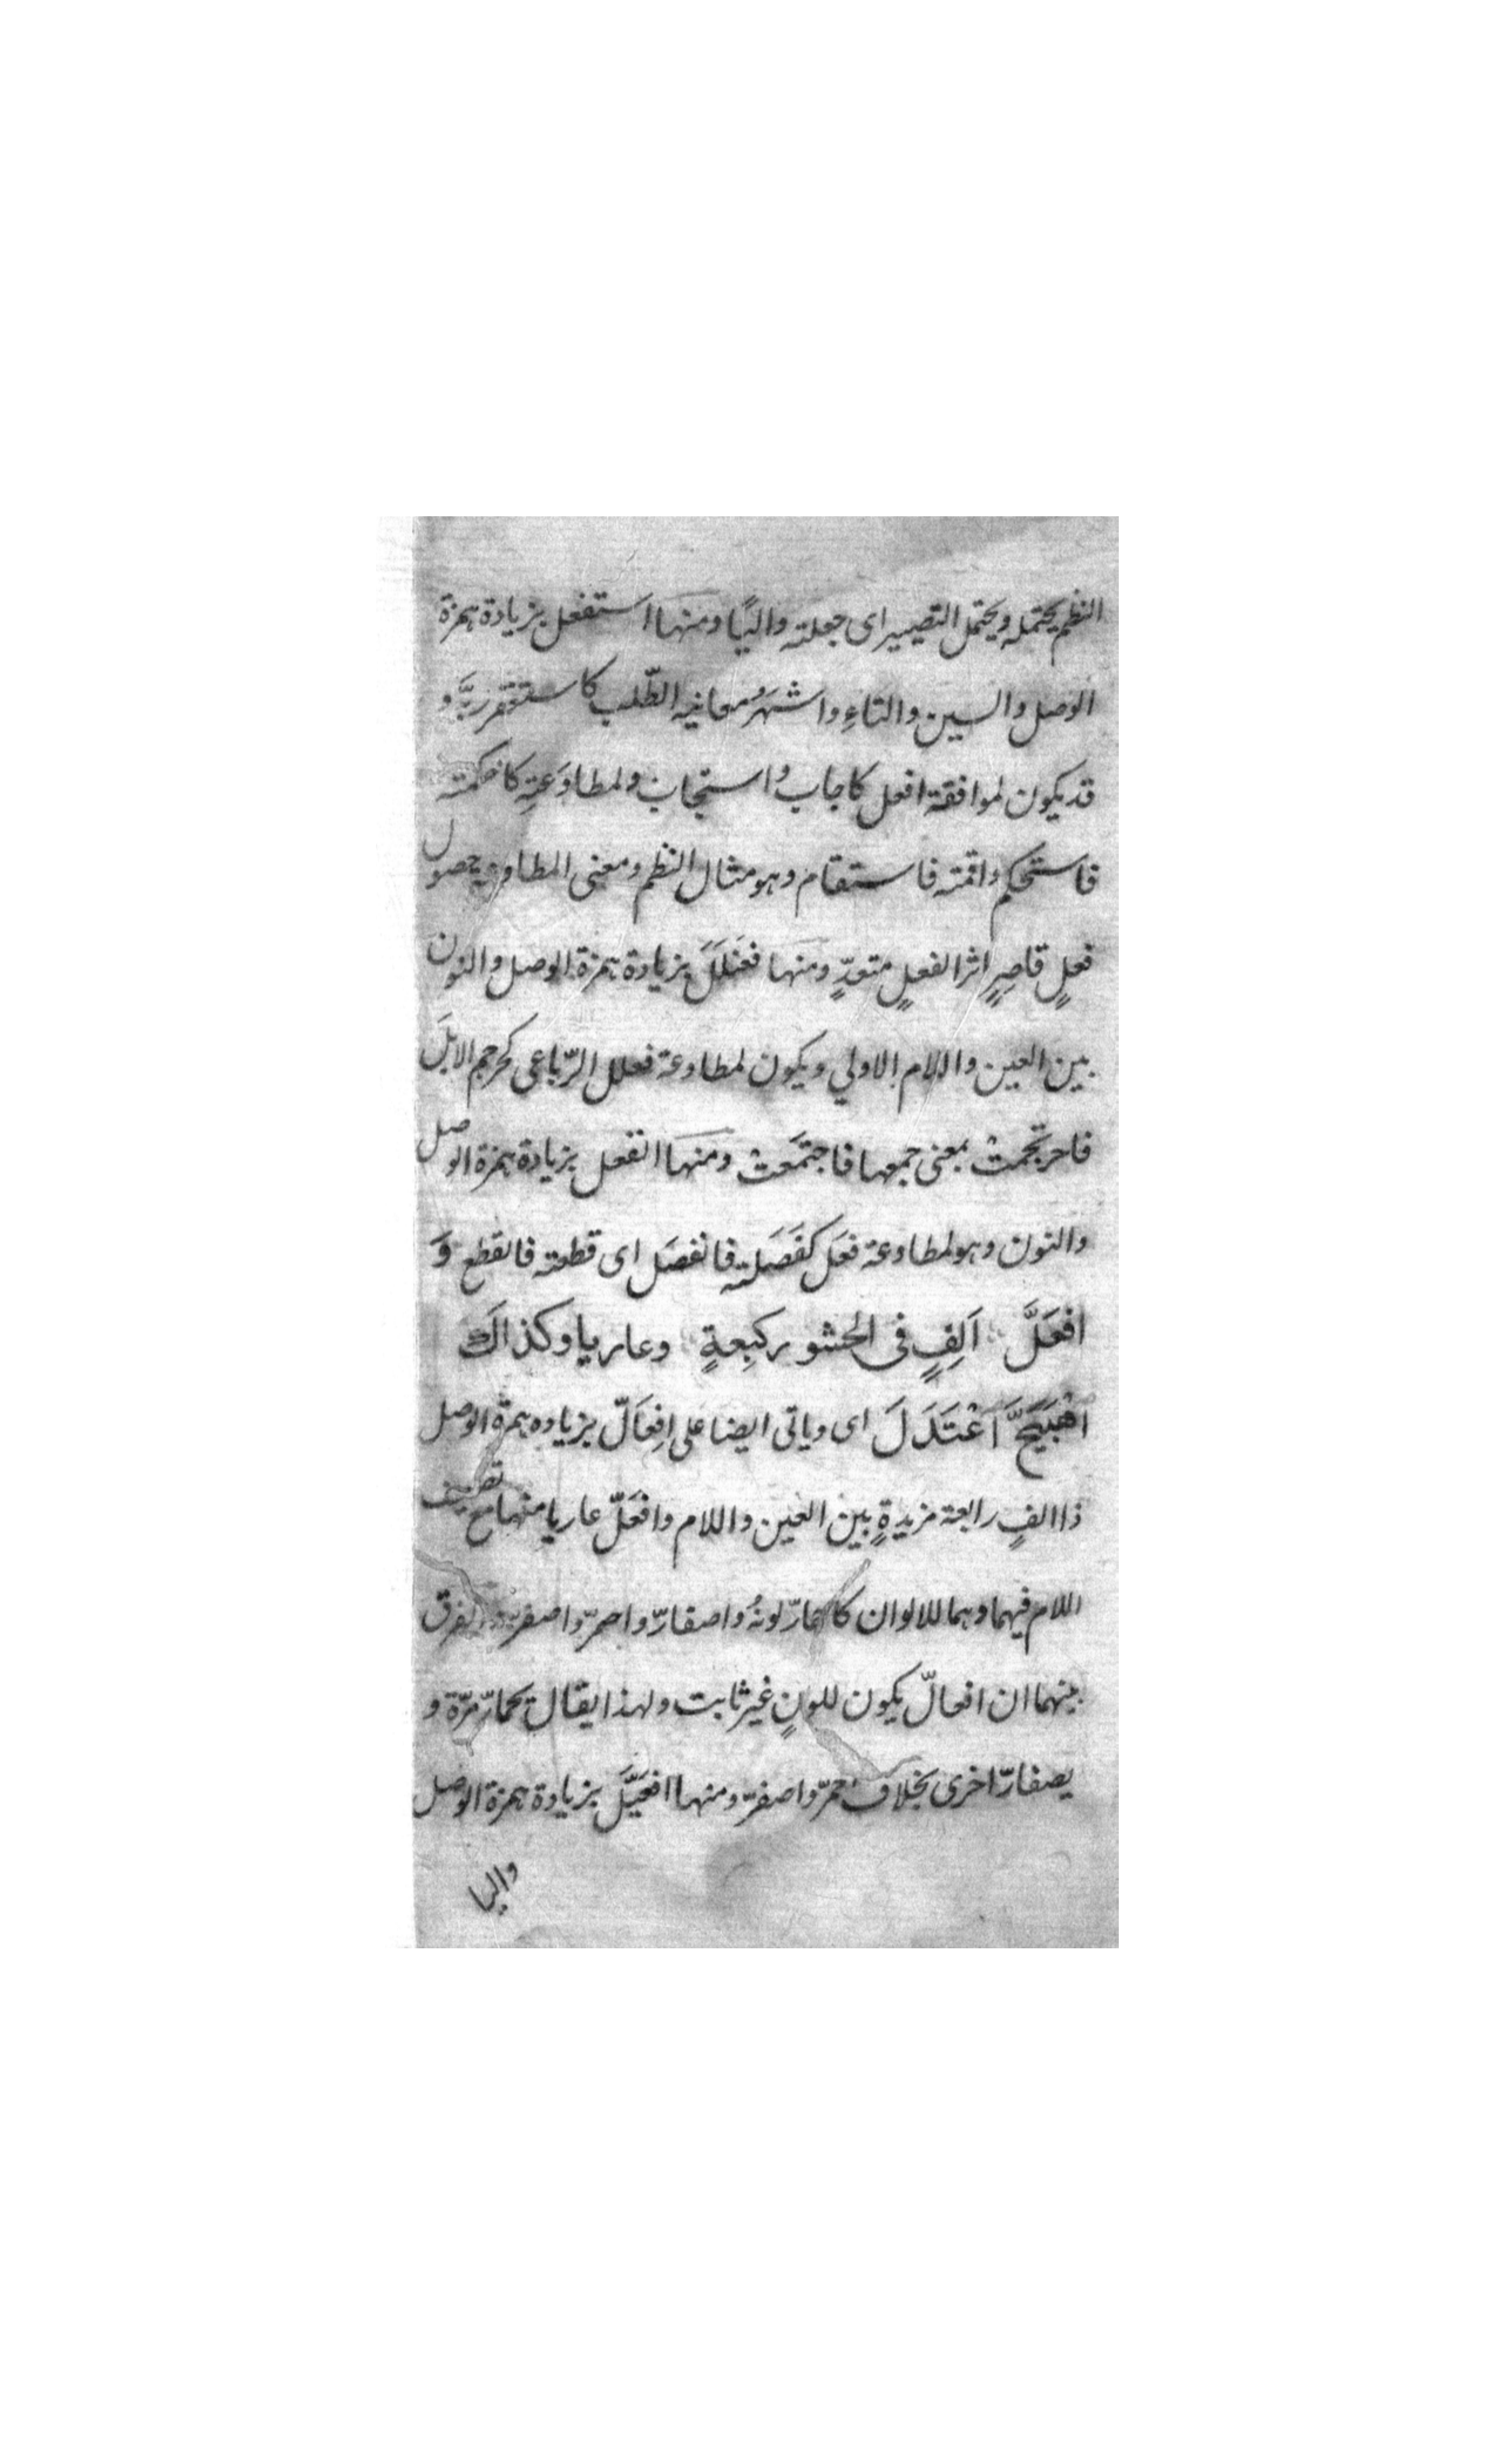 النظم يحتمله ويحتمل التصيير اى جعلته واليًا ومنها استفعل بزيادة همزة
الوصل والسين والتاءِ واشهَرُ معانيه الطّلب كاستغفر ربَّه و
قد يكون لموافقة افعل كاجاب واستجاب ولمطاوَعتِه كاحكمته
فاستحكم واقمته فاستقام وهو مثال النظم ومعنى المطاوعة حصول
فعلٍ قاصِرٍ اثر الفعلٍ متعدٍّ ومنها فعَنلَلَ بزيادة همزة الوصل والنون
بين العين واللام الاولي ويكون لمطاوعة فعلل الرّباعى كحرجم الابلَ
فاحرنجمتْ بمعنى جمعها فاجتمَعتْ ومنها انفعل بزيادة همزة الوصل
والنون وهو لمطاوعة فعَل كفَصَلته فانفصَل اى قطعته فانقطع وَ
افعَلَّ اَلِفٍ فى الحشو رابِعةٍ وعاريا وكذاكَ
اهْبَيَّخَ اعْتَدَلَ اى وياتى ايضا على اِفعَالّ بزياده همزة الوصل
ذا الفٍ رابعة مزيدةٍ بين العين واللام وافعَلّ عاريا منها مع تضعيف
اللام فيهما وهما للالوان كاحمارّ لونهُ واصفارّ واحمرّ واصفرّ والفرق
بينهما ان افعالّ يكون للونٍ غير ثابت ولهذا يقال يحمارّ مرّة و
يصفارّ اخرى بخلاف احمرّ واصفرّ ومنها افعَيَّلَ بزيادة همزة الوصل
واليا